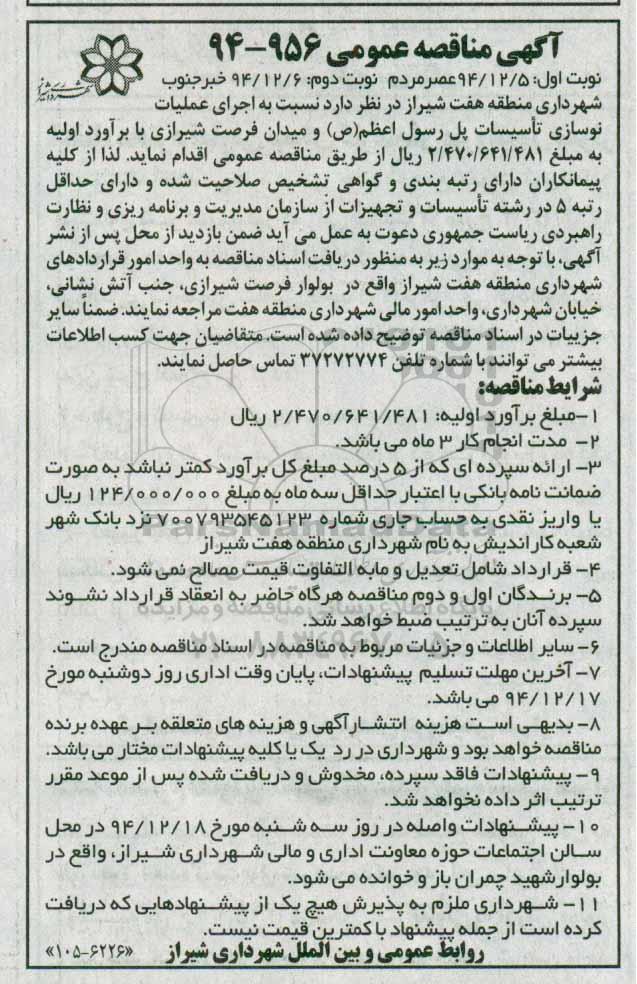 آگهی مناقصه عمومی ۹۵۶-۹۴
نوبت اول: ۹۴/۱۲/۵عصرمردم نوبت دوم: ۹۴/۱۲/۶ خبرجنوب
شهرداری منطقه هفت شیراز در نظر دارد نسبت به اجرای عملیات
نوسازی تأسیسات پل رسول اعظم(ص) و میدان فرصت شیرازی با برآورد اولیه
به مبلغ ۲/۴۷۰/۶۴۱/۴۸۱ ریال از طریق مناقصه عمومی اقدام نماید. لذا از کلیه
پیمانکاران دارای رتبه بندی و گواهی تشخیص صلاحیت شده و دارای حداقل
رتبه ۵ در رشته تأسیسات و تجهیزات از سازمان مدیریت و برنامه ریزی و نظارت
راهبردی ریاست جمهوری دعوت به عمل می آید ضمن بازدید از محل پس از نشر
آگهی، با توجه به موارد زیر به منظور دریافت اسناد مناقصه به واحد امور قراردادهای
شهرداری منطقه هفت شیراز واقع در بولوار فرصت شیرازی، جنب آتش نشانی،
خیابان شهرداری، واحد امور مالی شهرداری منطقه هفت مراجعه نمایند. ضمناً سایر
جزییات در اسناد مناقصه توضیح داده شده است. متقاضیان جهت کسب اطلاعات
بیشتر می توانند با شماره تلفن ۳۷۲۷۲۷۷۴ تماس حاصل نمایند.
شرایط مناقصه:
۱-مبلغ برآورد اولیه: ۲/۴۷۰/۶۴۱/۴۸۱ ریال
۲- مدت انجام کار ۳ ماه می باشد.
۳- ارائه سپرده ای که از ۵ درصد مبلغ کل برآورد کمتر نباشد به صورت
ضمانت نامه بانکی با اعتبار حداقل سه ماه به مبلغ ۱۲۴/۰۰۰/۰۰۰ ریال
یا واریز نقدی به حساب جاری شماره ۷۰۰۷۹۳۵۴۵۱۲۳ نزد بانک شهر
شعبه کاراندیش به نام شهرداری منطقه هفت شیراز
۴- قرارداد شامل تعدیل و مابه التفاوت قیمت مصالح نمی شود.
۵- برندگان اول و دوم مناقصه هرگاه حاضر به انعقاد قرارداد نشوند
سپرده آنان به ترتیب ضبط خواهد شد.
۶- سایر اطلاعات و جزئیات مربوط به مناقصه در اسناد مناقصه مندرج است.
۷- آخرین مهلت تسلیم پیشنهادات، پایان وقت اداری روز دوشنبه مورخ
۹۴/۱۲/۱۷ می باشد.
۸- بدیهی است هزینه انتشار آگهی و هزینه های متعلقه بر عهده برنده
مناقصه خواهد بود و شهرداری در رد یک یا کلیه پیشنهادات مختار می باشد.
۹- پیشنهادات فاقد سپرده، مخدوش و دریافت شده پس از موعد مقرر
ترتیب اثر داده نخواهد شد.
۱۰- پیشنهادات واصله در روز سه شنبه مورخ ۹۴/۱۲/۱۸ در محل
سالن اجتماعات حوزه معاونت اداری و مالی شهرداری شیراز، واقع در
بولوار شهید چمران باز و خوانده می شود.
۱۱- شهرداری ملزم به پذیرش هیچ یک از پیشنهادهایی که دریافت
کرده است از جمله پیشنهاد با کمترین قیمت نیست.
روابط عمومی و بین الملل شهرداری شیراز «۱۰۵-۶۲۲۶»